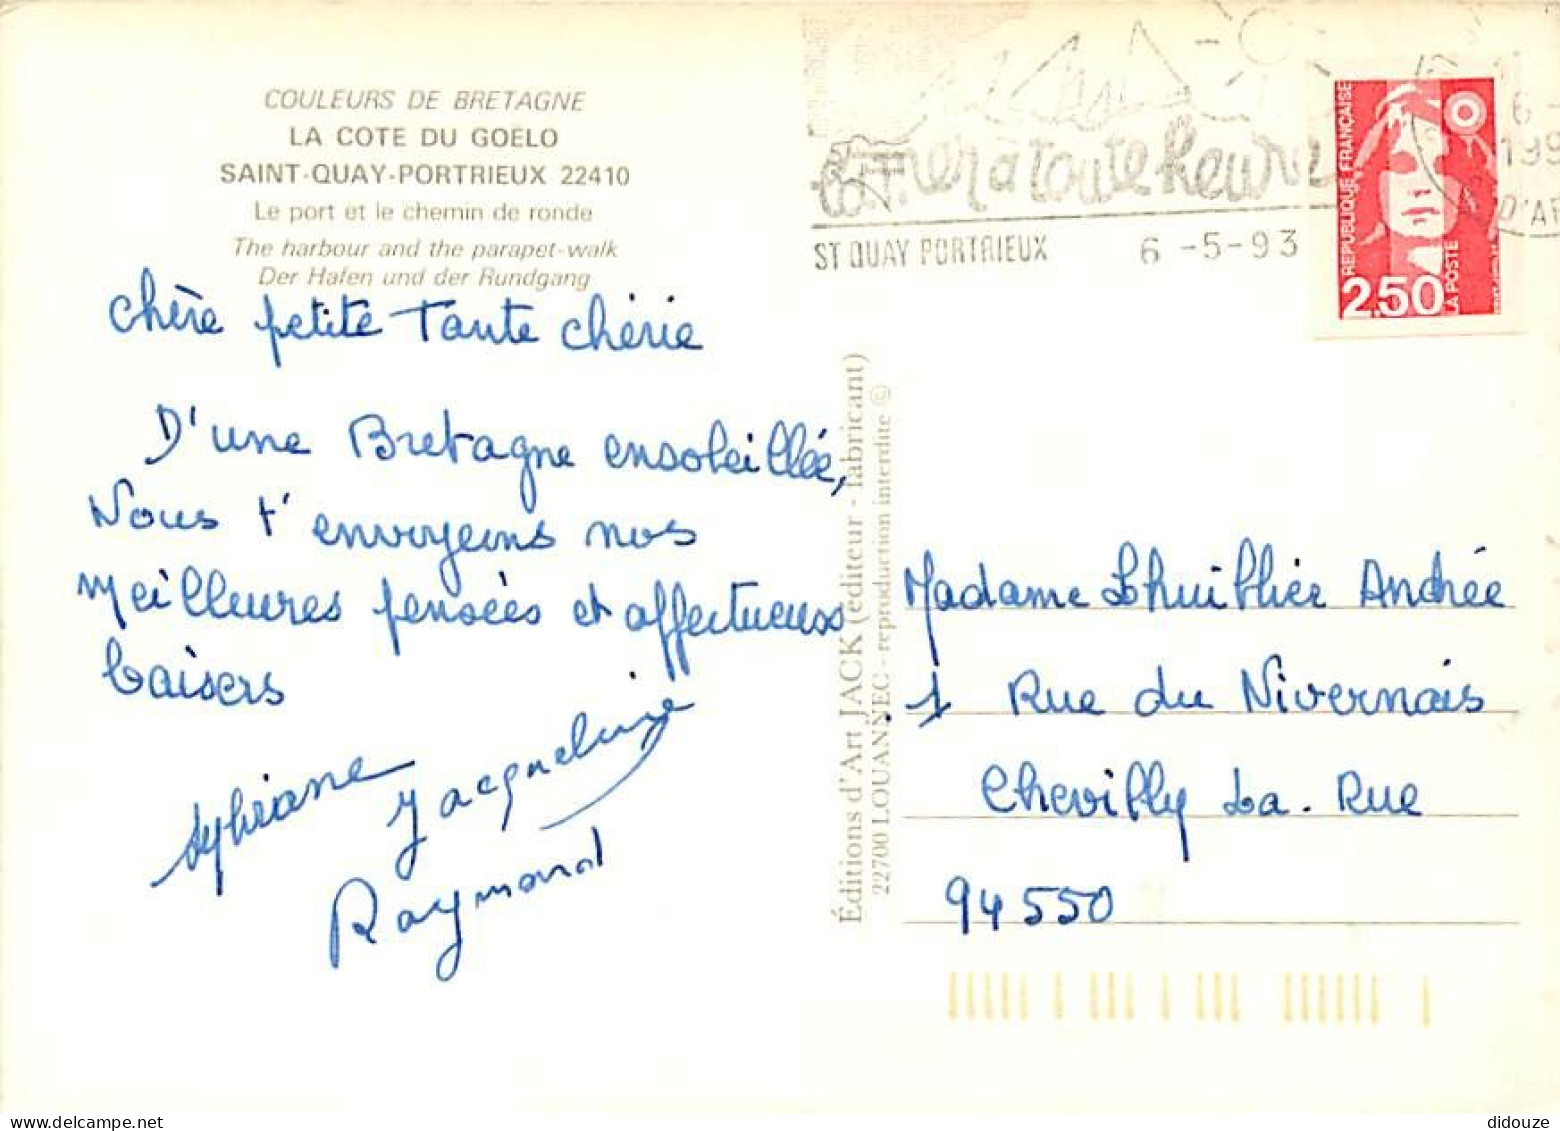 COULEURS DE BRETAGNE
LA COTE DU GOËLO
SAINT-QUAY-PORTRIEUX 22410
Le port et le chemin de ronde
The harbour and the parapet-walk
Der Hafen und der Rundgang
chère petite Tante chérie
D'une Bretagne ensoleillée,
Nous t'envoyons nos
meilleures pensées et affectueux
baisers
Sylviane
Jacqueline
Raymond
Éditions d'Art JACK (éditeur - fabricant)
22700 LOUANNEC - reproduction interdite ©
la mer à toute heure
ST QUAY PORTRIEUX 6 -5-93
REPUBLIQUE FRANÇAISE
2,50
LA POSTE
6 -
199
D'AR
Madame Lhuillier Andrée
1 Rue du Nivernais
Chevilly La. Rue
94550
didouze